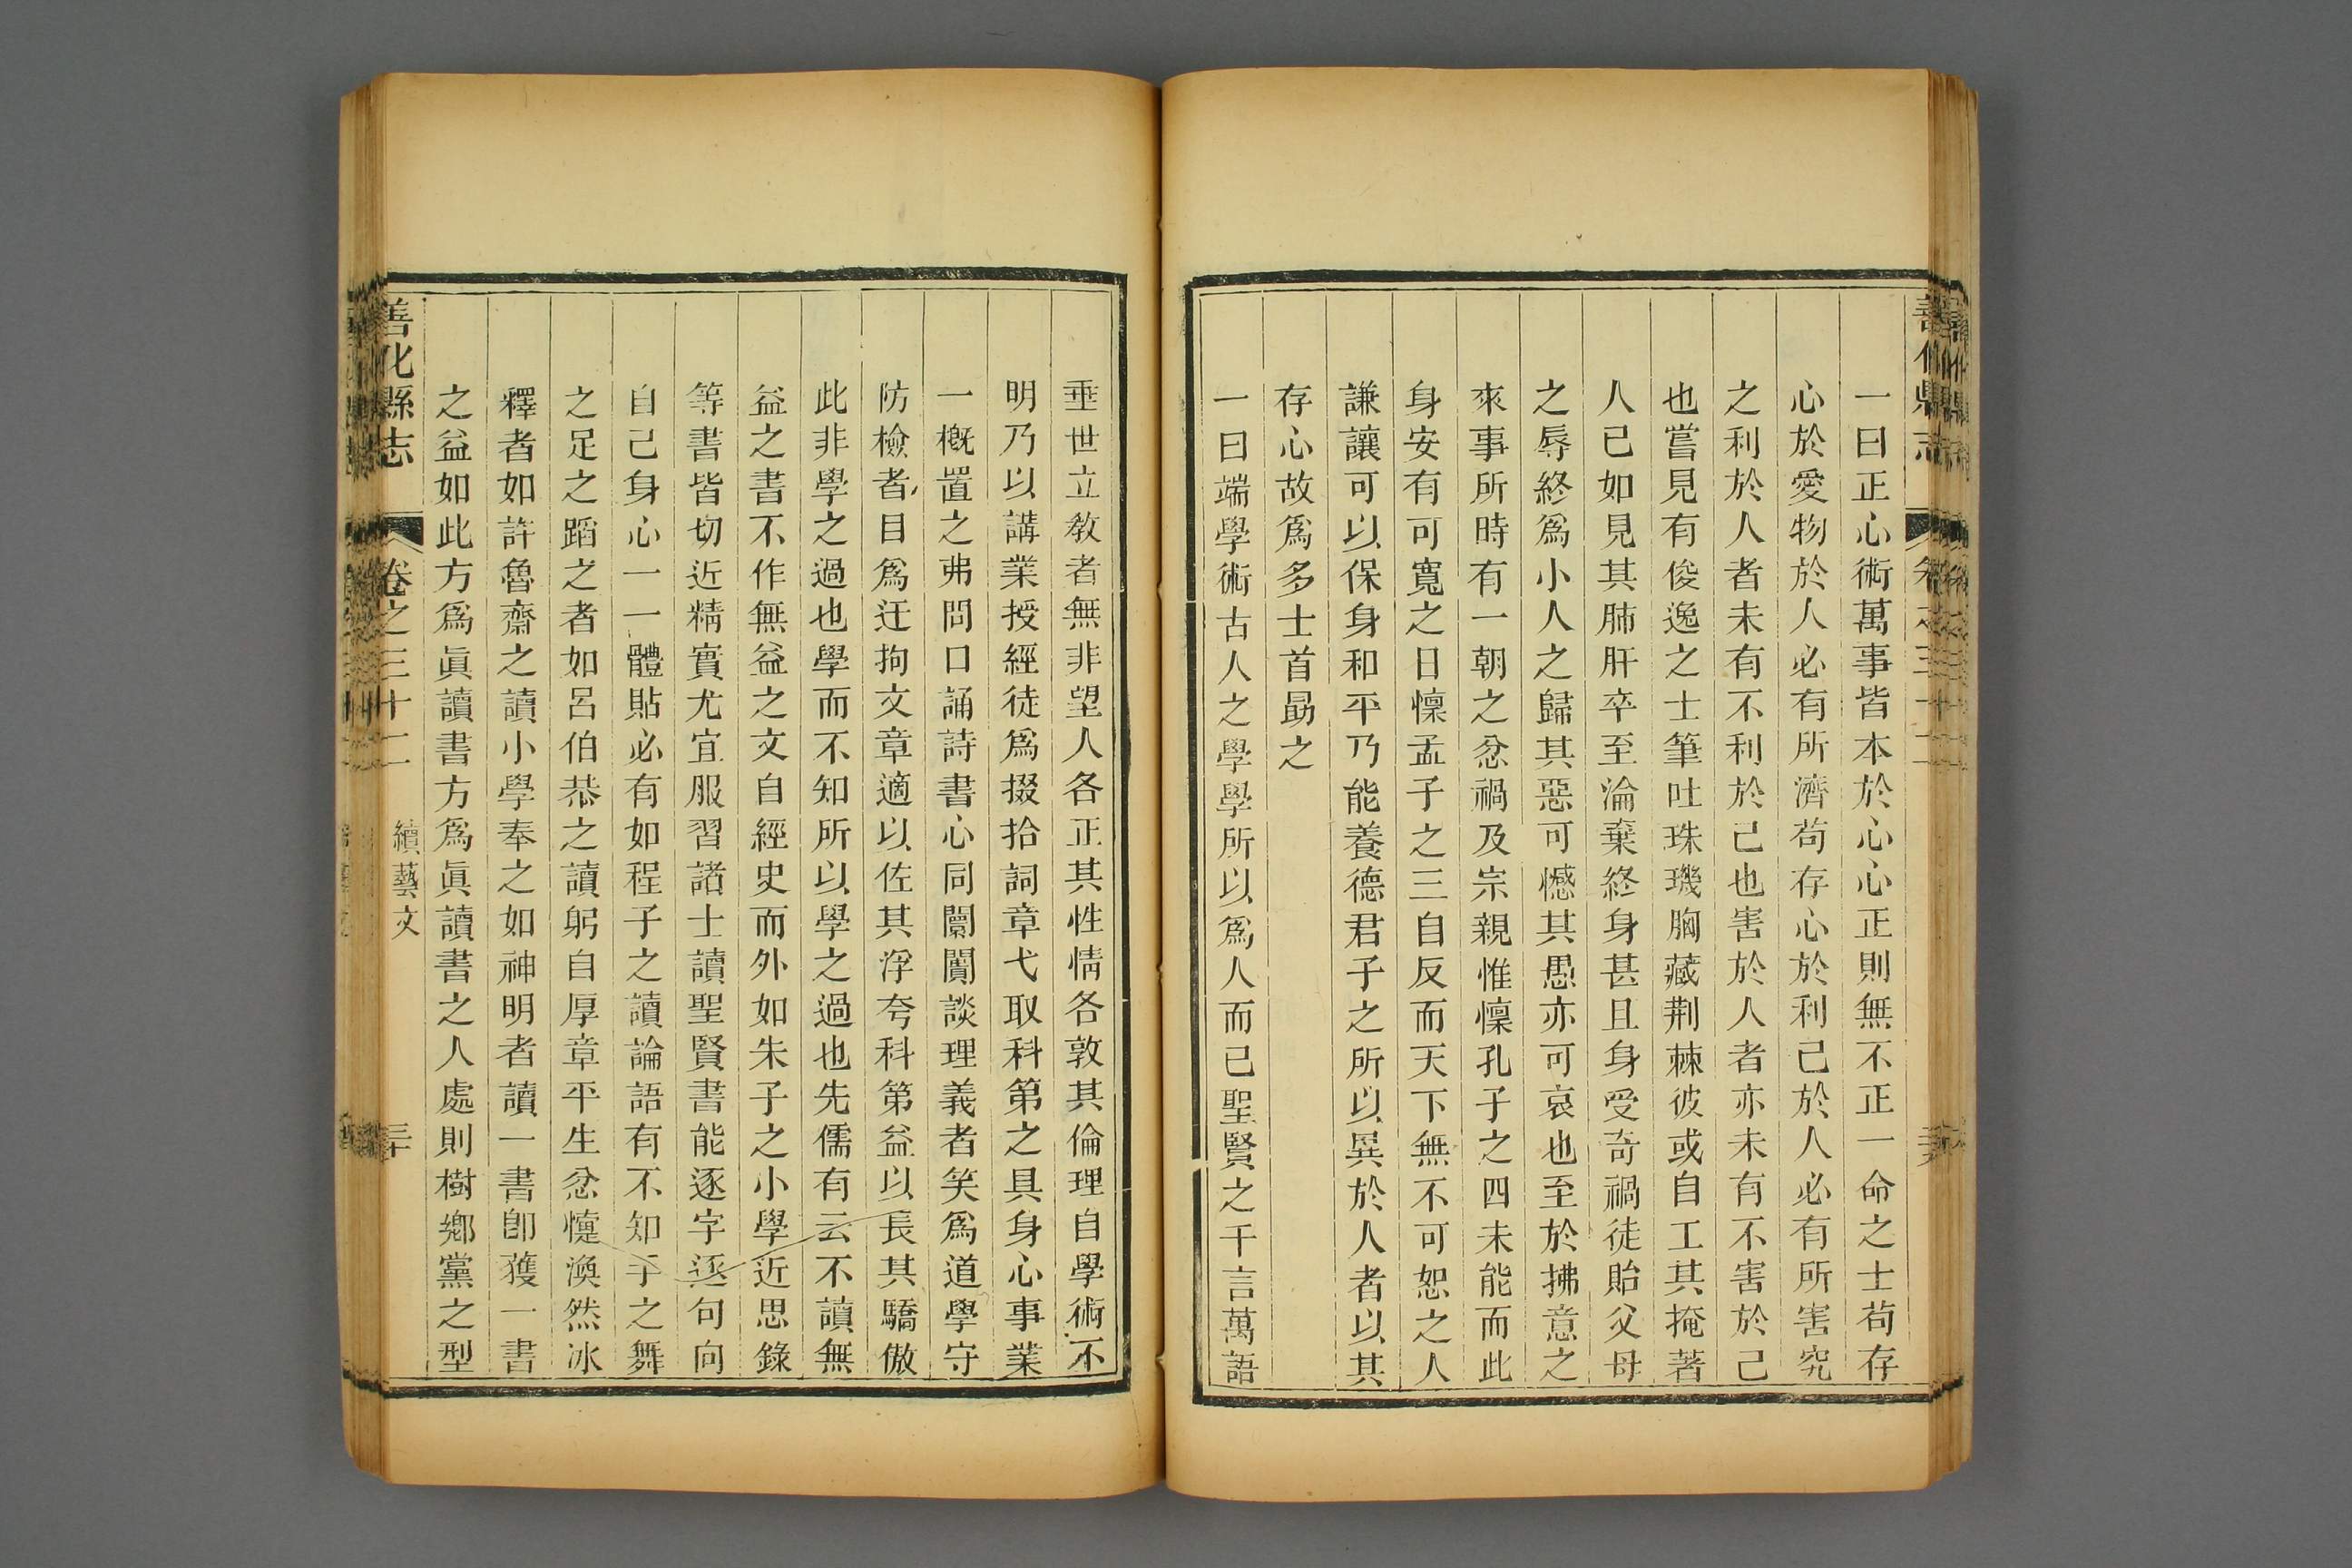 一曰正心術萬事皆本於心心正則無不正一命之士苟存
心於愛物於人必有所濟苟存心於利己於人必有所害究
之利於人者未有不利於己也害於人者亦未有不害於己
也嘗見有俊逸之士筆吐珠璣胸藏荆棘彼或自工其掩著
人已如見其肺肝卒至淪棄終身甚且身受奇禍徒貽父母
之辱終爲小人之歸其惡可憾其愚亦可哀也至於拂意之
來事所時有一朝之忿禍及宗親惟懍孔子之四未能而此
身安有可寬之日懍孟子之三自反而天下無不可恕之人
謙讓可以保身和平乃能養德君子之所以異於人者以其
存心故爲多士首勗之
一曰端學術古人之學學所以爲人而已聖賢之千言萬語
垂世立教者無非望人各正其性情各敦其倫理自學術不
明乃以講業授經徒爲掇拾詞章弋取科第之具身心事業
一槪置之弗問口誦詩書心同闤闠談理義者笑爲道學守
防檢者目爲迂拘文章適以佐其浮夸科第益以長其驕傲
此非學之過也學而不知所以學之過也先儒有云不讀無
益之書不作無益之文自經史而外如朱子之小學近思錄
等書皆切近精實尤宜服習諸士讀聖賢書能逐字逐句向
自己身心一一體貼必有如程子之讀論語有不知手之舞
之足之蹈之者如呂伯恭之讀躬自厚章平生忿懥渙然冰
釋者如許魯齋之讀小學奉之如神明者讀一書卽獲一書
之益如此方爲眞讀書方爲眞讀書之人處則樹鄉黨之型
善化縣志 卷之三十二 續藝文 三十